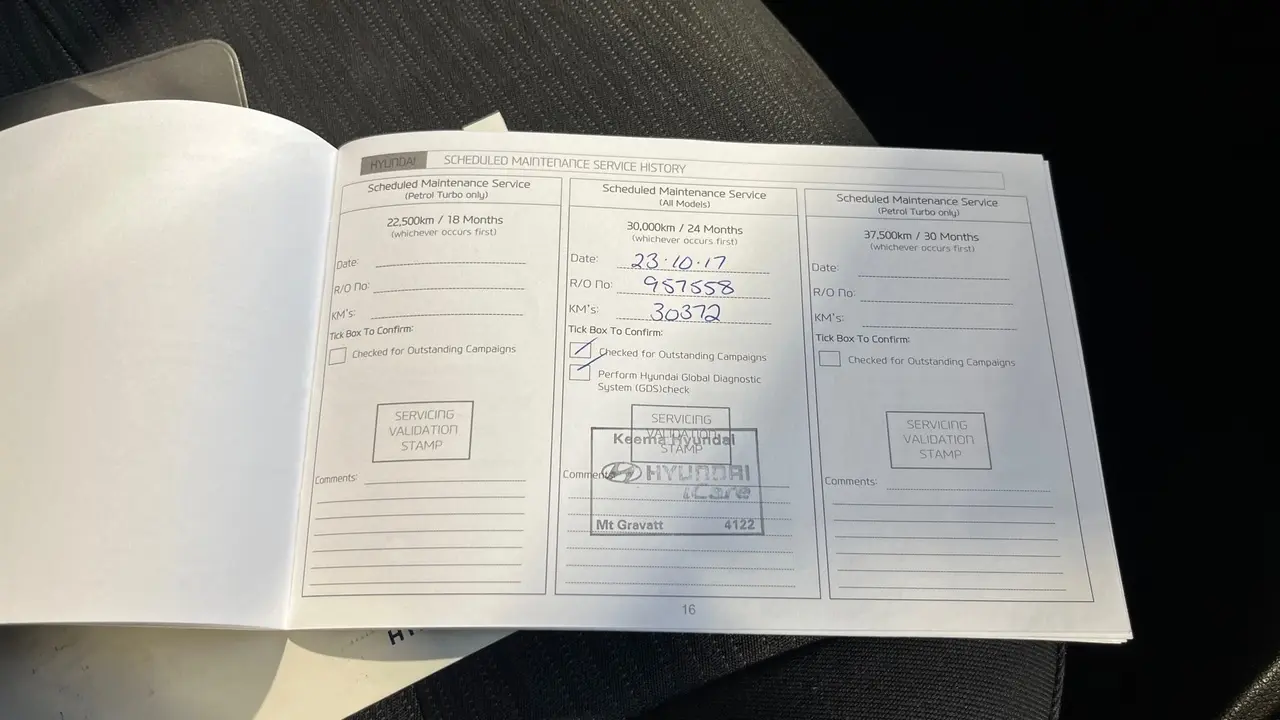 HYUNDAI SCHEDULED MAINTENANCE SERVICE HISTORY
Scheduled Maintenance Service
(Petrol Turbo only)
22,500km / 18 Months
(whichever occurs first)
Date:
R/O No:
KM's:
Tick Box To Confirm:
Checked for Outstanding Campaigns
SERVICING
VALIDATION
STAMP
Comments:
Scheduled Maintenance Service
(All Models)
30,000km / 24 Months
(whichever occurs first)
Date: 23·10·17
R/O No: 957558
KM's: 30372
Tick Box To Confirm:
Checked for Outstanding Campaigns
Perform Hyundai Global Diagnostic
System (GDS)check
SERVICING
VALIDATION
STAMP
Keema Hyundai
Comments
HYUNDAI
iCare
Mt Gravatt 4122
Scheduled Maintenance Service
(Petrol Turbo only)
37,500km / 30 Months
(whichever occurs first)
Date:
R/O No:
KM's:
Tick Box To Confirm:
Checked for Outstanding Campaigns
SERVICING
VALIDATION
STAMP
Comments:
16